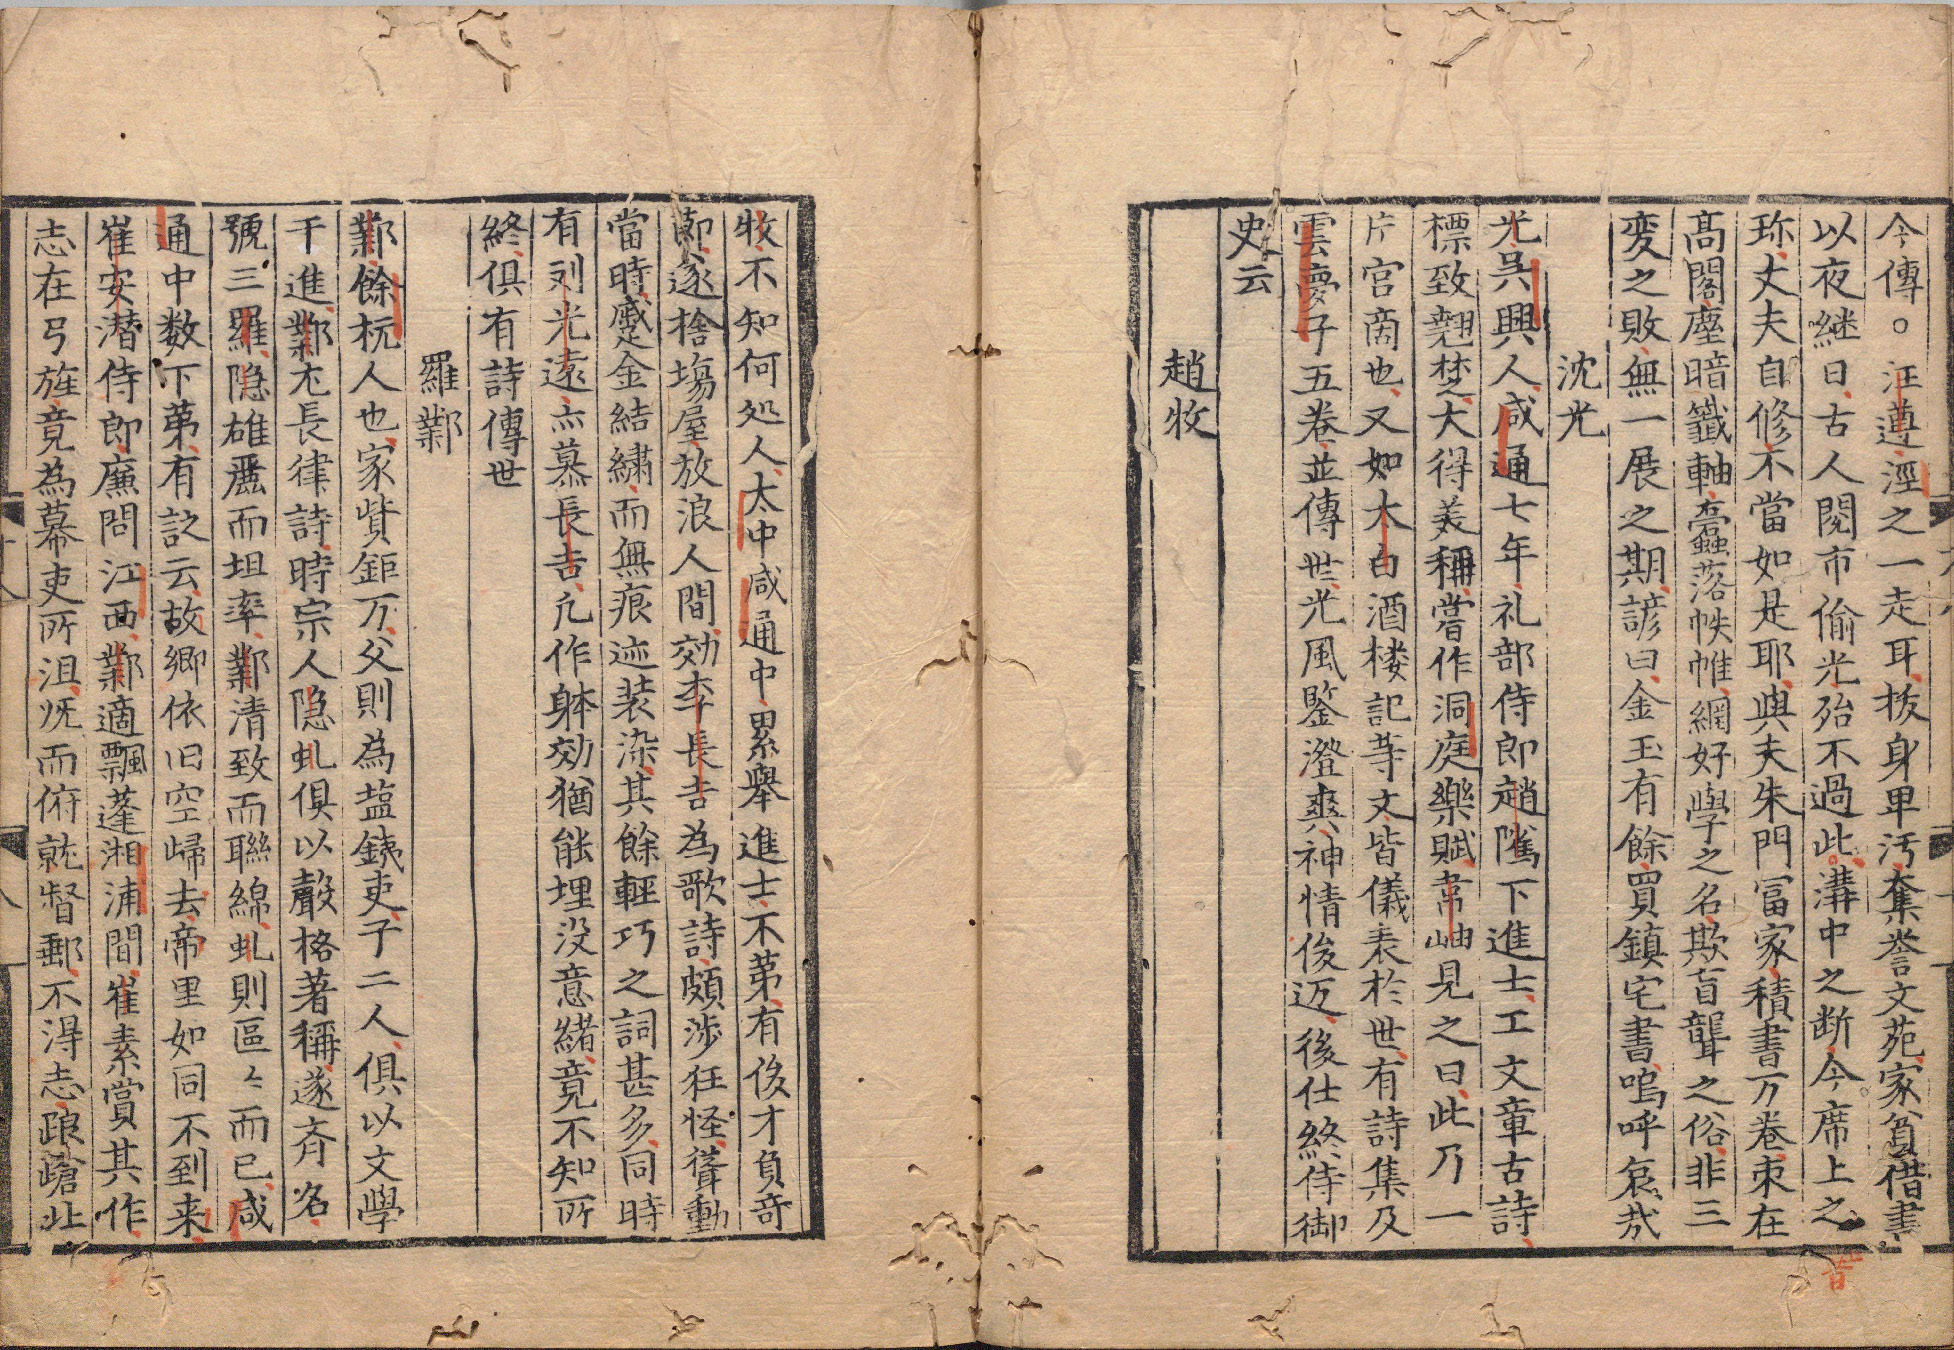 今傳○汪遵涇之一走耳拔身卑汚奪誉文苑家貧借書
以夜継日古人閱市偷光殆不過此溝中之断今席上之
珎丈夫自修不當如是耶與夫朱門冨家積書万卷束在
髙閣塵暗籤軸蠹落帙帷網好學之名欺盲聾之俗非三
変之敗無一展之期諺曰金玉有餘買鎮宅書嗚呼哀㢤
沈光
光呉興人咸通七年礼部侍郎趙隲下進士工文章古詩
標致翹楚大得美稱嘗作洞庭樂賦韋岫見之曰此乃一
片宫商也又如太白酒楼記等文皆儀表於世有詩集及
雲夢子五卷並傳世光風鑒澄爽神情俊迈後仕終侍御
史云
趙牧
牧不知何处人太中咸通中累舉進士不第有俊才負竒
莭遂捨塲屋放浪人間効李長吉為歌詩頗涉狂怪聳動
當時蹙金結繡而無痕迹装染其餘輕巧之詞甚多同時
有刘光遠亦慕長吉凢作躰効猶能埋没意緒竟不知所
終俱有詩傳世
羅鄴
鄴餘杭人也家貲鉅万父則為塩鉄吏子二人俱以文學
干進鄴尤長律詩時宗人隐虬俱以聲格著稱遂齐名
號三羅隐雄麗而坦率鄴清致而聯綿虬則區々而已咸
通中数下第有詩云故郷依旧空歸去帝里如同不到来
崔安潜侍郎廉問江西鄴適飄蓬湘浦間崔素賞其作
志在弓旌竟為幕吏所沮旣而俯就督郵不得志踉蹌北